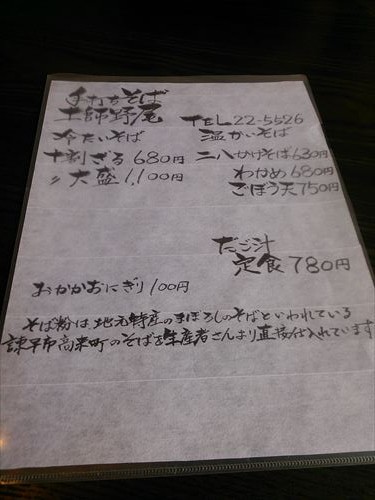 手打ちそば
土師野尾
TEL22-5526
冷たいそば
十割ざる 680円
〃 大盛 1,100円
温かいそば
二八かけそば630円
わかめ680円
ごぼう天750円
だご汁
定食780円
おかかおにぎり100円
そば粉は地元特産のまぼろしのそばといわれている
諫早市高来町のそばを生産者さんより直接仕入れています